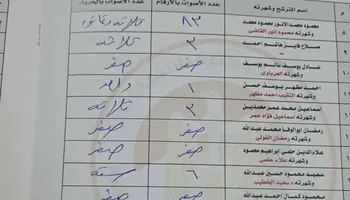 م اسم المترشح وشهرته عدد الأصوات بالأرقام عدد الأصوات بالحروف
محمود محمد الانور محمود محمد
وشهرته محمود انور القاضى ٨٣ ثلاثة وثمانون
٨ صلاح فايز هاشم احمد ٣ ثلاثة
٩ عادل يوسف عالم يوسف
وشهرته الحرباوى صفر صفر
١٠ احمد مظهر يوسف حسن
وشهرته النقيب احمد مظهر ١ واحد
١١ اسماعيل محمد عمر محمدين
وشهرته اسماعيل فؤاد عمر ٣ ثلاثة
١٢ رمضان ابوالوفا محمد عبدالله
وشهرته رمضان الفولى صفر صفر
علاء الدين حلمى ابراهيم محمود
وشهرته علاء حلمى صفر صفر
سعيد محمود حسين عبدالله
وشهرته سعيد الخطيب ٦ ستة
محمود كمال احمد عبد الله صفر صفر